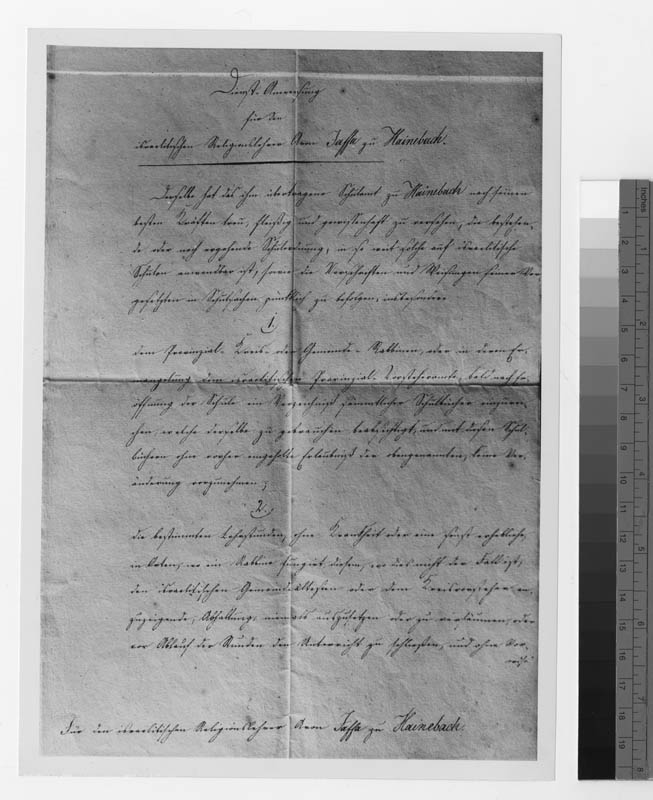 Dienst-Anweisung
für den
israelitischen Religionslehrer Aron Jaffa zu Hainebach.
Derselbe hat das ihm übertragene Schulamt zu Hainebach nach seinen
besten Kräften treu, fleißig und gewissenhaft zu versehen, die bestehen-
de oder noch ergehende Schulordnung, in so weit solche auf israelitische
Schulen anwendbar ist, sowie die Vorschriften und Weisungen seiner Vor-
gesetzten in Schulsachen pünktlich zu befolgen, insbesondere
1.
dem Provinzial- Kreis- oder Gemeinde-Rabbinen, oder in deren Er-
mangelung dem israelitischen Provinzial-Vorsteheramte, bald nach Er-
öffnung der Schule ein Verzeichniß sämmtlicher Schulbücher einzurei-
chen, welche derselbe zu gebrauchen beabsichtigt, und mit diesen Schul-
büchern ohne vorher eingeholte Erlaubniß der obengenannten, keine Ver-
änderung vorzunehmen;
2.
die bestimmten Lehrstunden, ohne Krankheit oder eine sonst erhebliche,
in Orten, wo ein Rabbine fungirt diesem, wo dies nicht der Fall ist,
den israelitischen Gemeindeältesten oder dem Kreisvorsteher an-
zuzeigende, Abhaltung, niemals auszusetzen oder zu versäumen, oder
vor Ablauf der Stunden den Unterricht zu schließen, und ohne Vor-
Für den israelitischen Religionslehrer Aron Jaffa zu Hainebach.
Inches
1
2
3
4
5
6
7
8
1
2
3
4
5
6
7
8
9
10
11
12
13
14
15
16
17
18
19